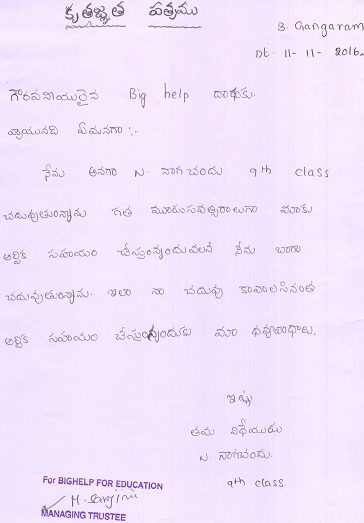 కృతజ్ఞత పత్రము
B. Gangaram
Dt. 11-11-2016.
గౌరవనీయులైన Big help దాతకు.
వ్రాయునది ఏమనగా :.
నేను అనగా N. నాగచందు 9th class
చదువుతున్నాను గత మూడుసంవత్సరాలుగా మాకు
ఆర్థిక సహాయం చేస్తున్నందువలన నేను బాగా
చదువుతున్నాను. ఇలా నా చదువు కావాలసినంత
ఆర్థిక సహాయం చేస్తున్నందుకు మా ధన్యవాధాలు.
ఇట్లు
తమ విధేయుడు
N నాగచందు.
9th class.
For BIGHELP FOR EDUCATION
MANAGING TRUSTEE